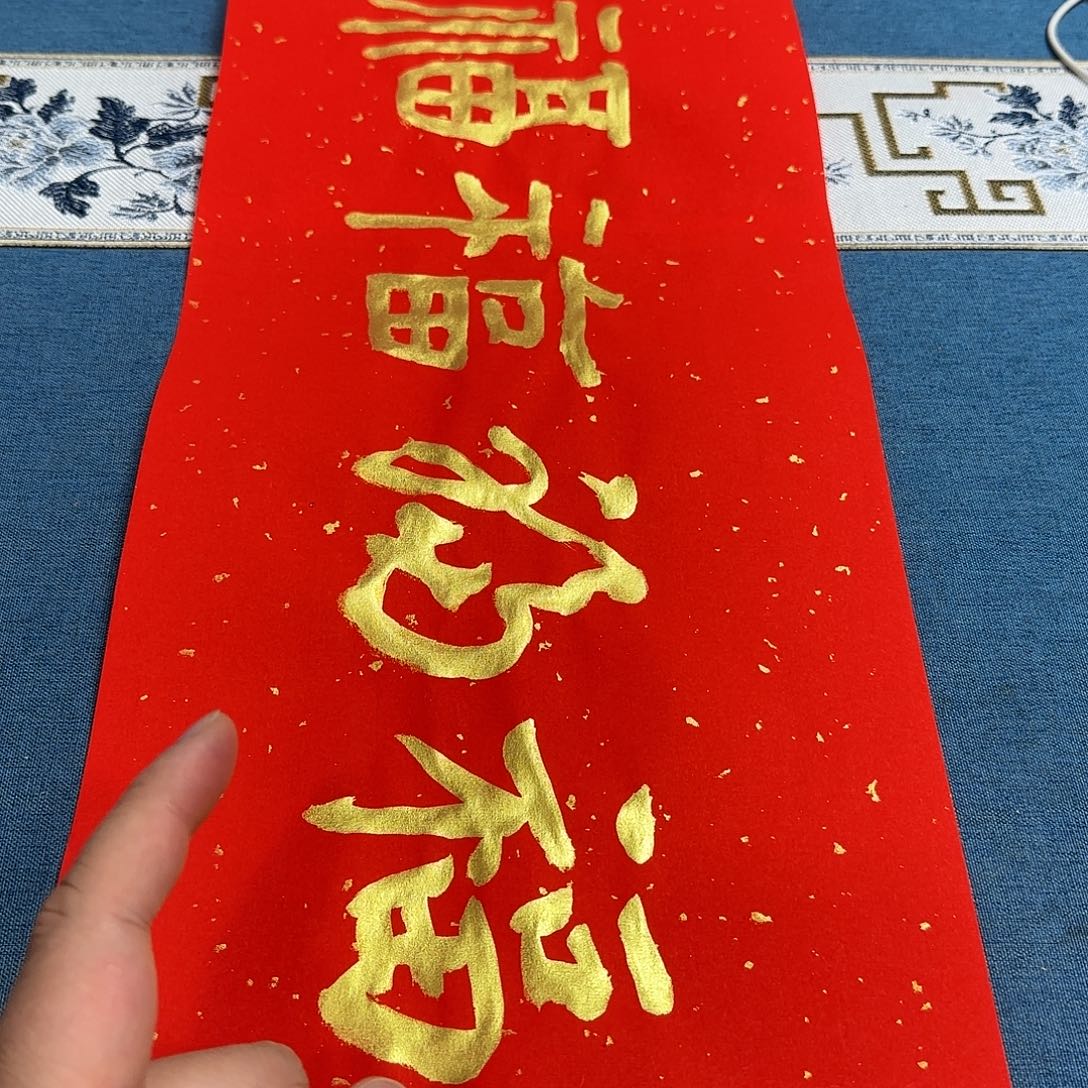 福福福福